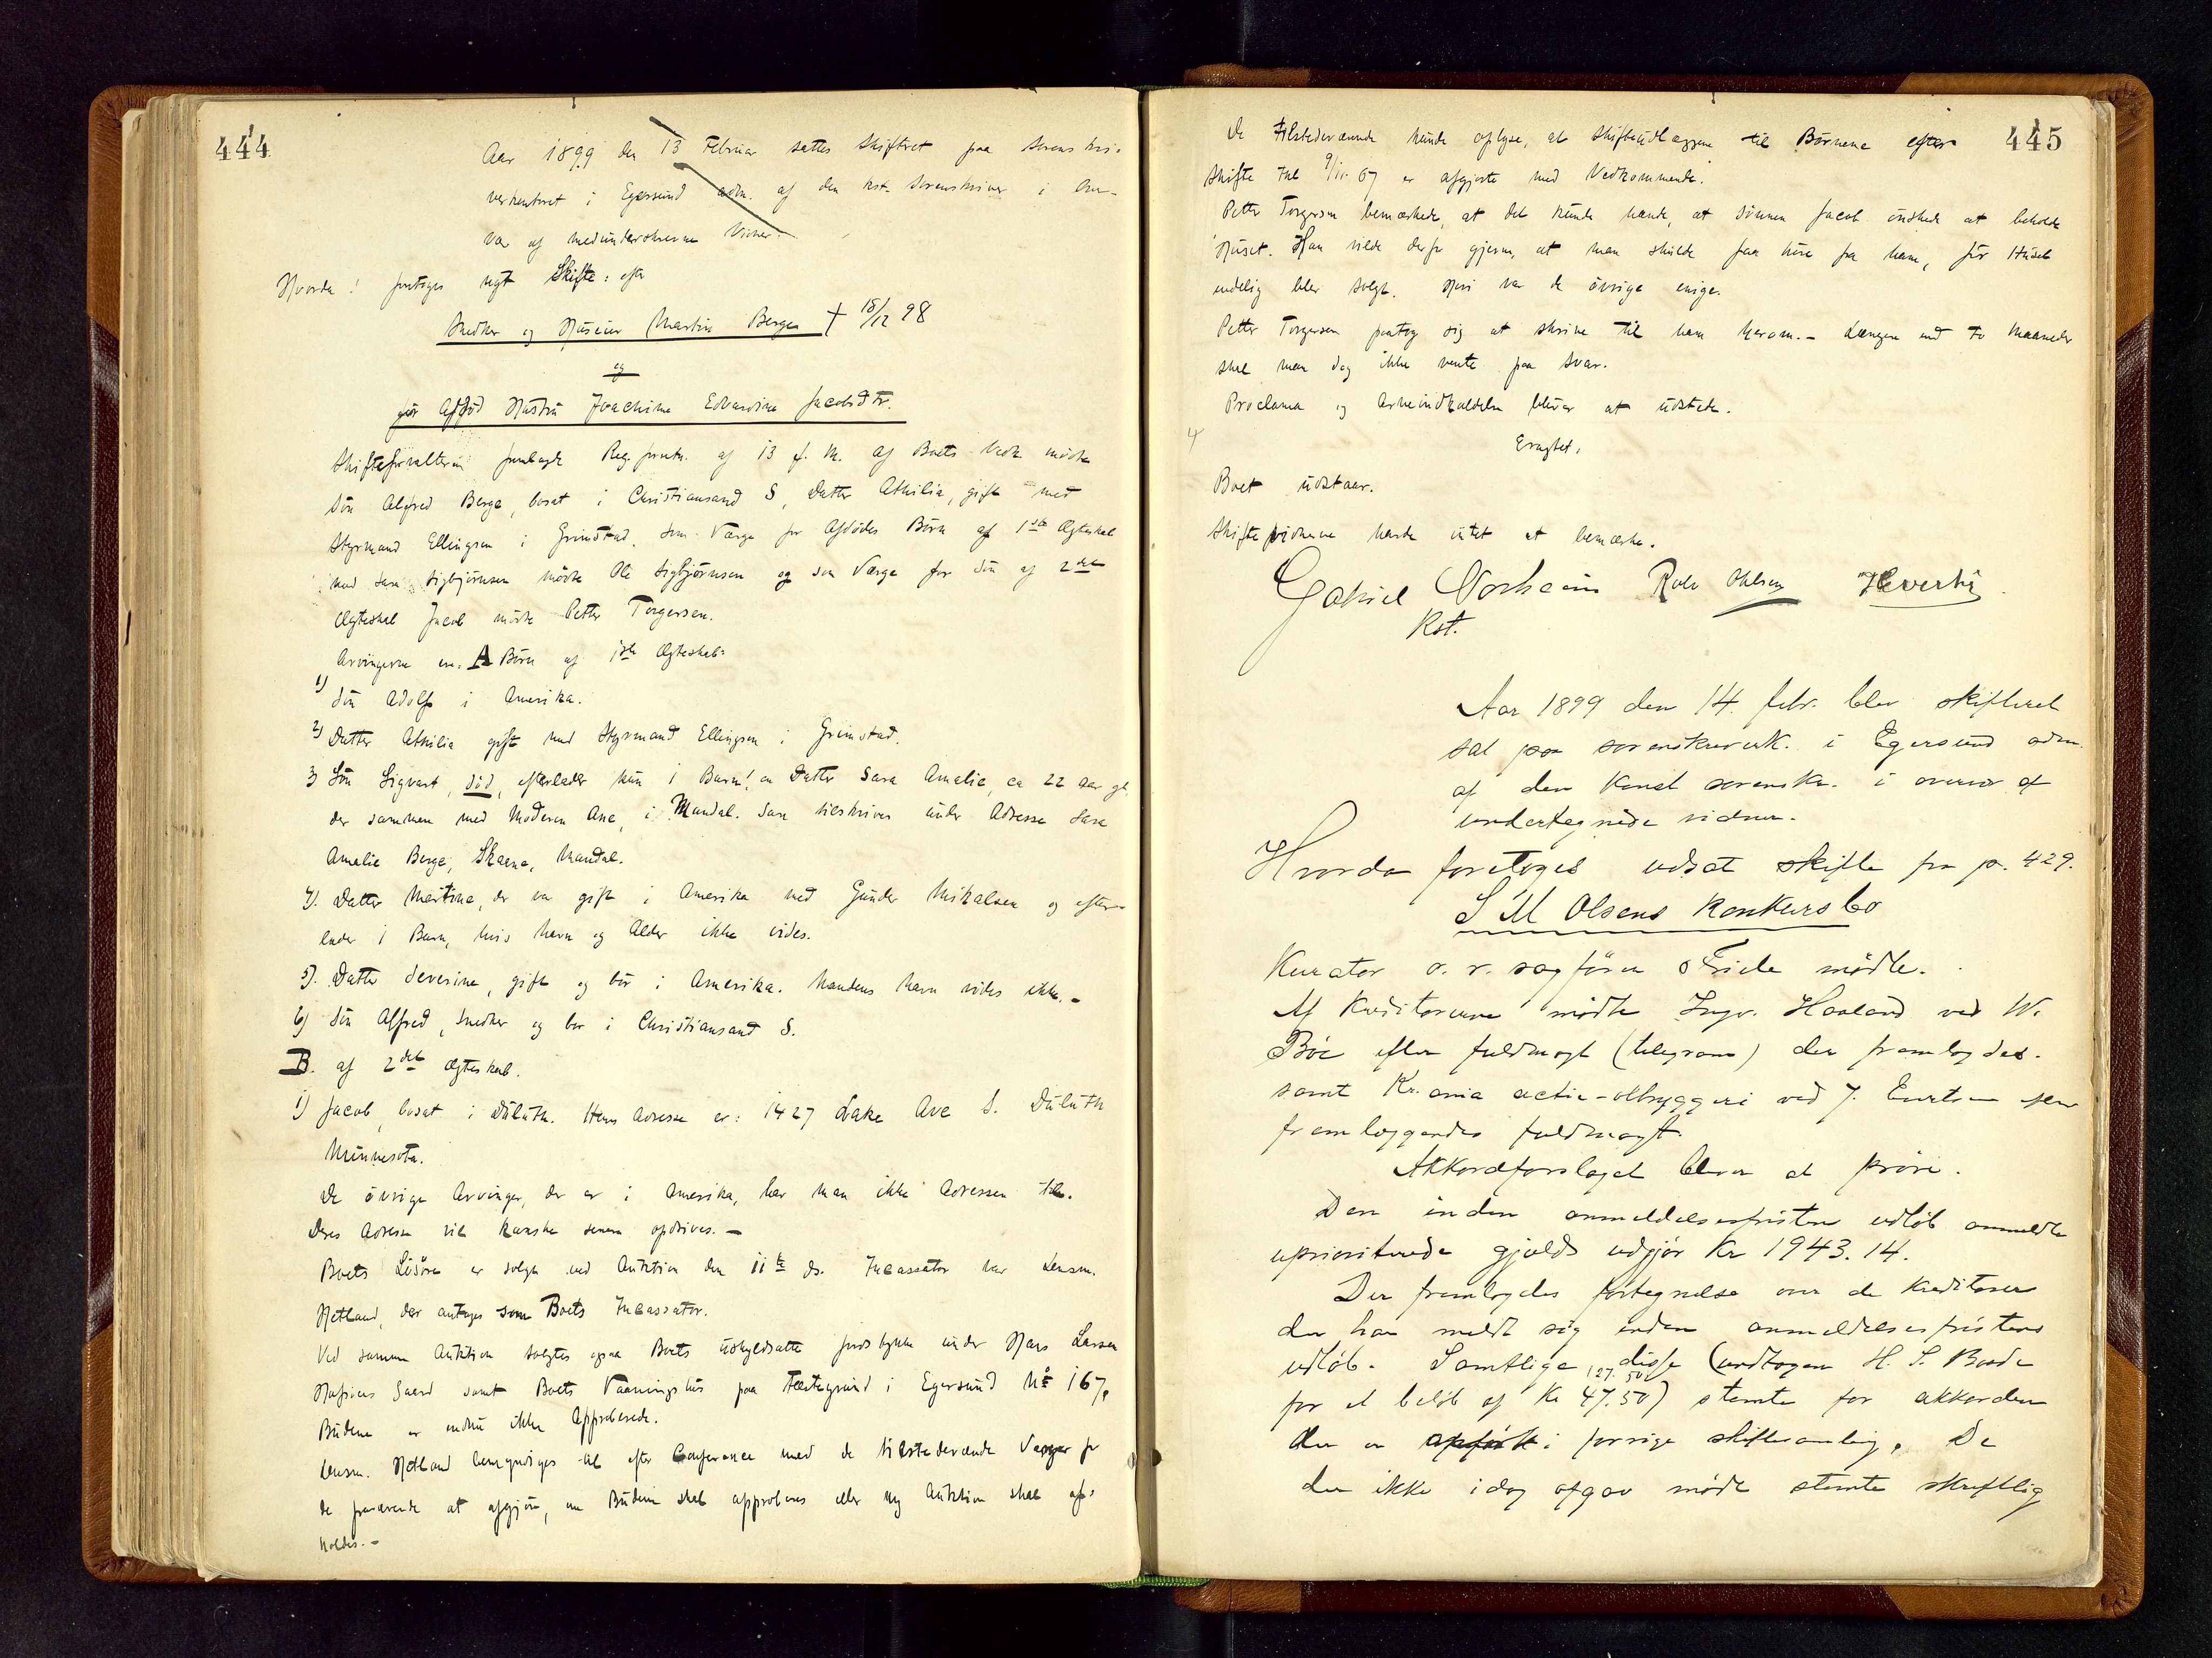 444
Aar 1899 den 13 Februar sattes Skifteret paa Sorenskri-
verkontoret i Egersund adm. af den kst. Sorenskriver i Over-
vær af medunderskrevne Vidner.
Hvorda! foretoges nyt Skifte: efter
Snedker og Huseier Martin Berge † 18/12 98
og
før Afdød Hustru Joachime Edvardine Jacobsdtr.
Skifteforvalteren fremlagde Reg. forretn. af 13 f. M. Af Boets Vedk mødte
Søn Alfred Berge, bosat i Christiansand S, Datter Athilia, gift med
Styrmand Ellingsen i Grimstad. Som Værge for Afdødes Børn af 1ste Ægteskab
med Sara Sigbjørnsen mødte Ole Sigbjørnsen og som Værge for Søn af 2det
Ægteskab Jacob mødte Petter Torgersen.
Arvingerne ere: A Børn af 1ste Ægteskab:
1) Søn Adolf i Amerika.
2) Datter Athilia gift med Styrmand Ellingsen i Grimstad.
3) Søn Sigvart, død, efterlader kun 1 Barn! en Datter Sara Amalie, ca 22 Aar gl.
der sammen med Moderen Ane, i Mandal. Sara tilskrives under Adresse Sara
Amalie Berge, Skaene, Mandal.
4). Datter Martine, der var gift i Amerika med Gunder Mikalsen og efter-
lader 1 Barn, hvis Navn og Alder ikke vides.
5). Datter Severine, gift og bor i Amerika. Mandens Navn vides ikke.-
6) Søn Alfred, Snedker og bor i Christiansand S.
B. af 2det Ægteskab.
1) Jacob, bosat i Duluth. Hans Adresse er: 1427 Lake Ave S. Duluth
Minnesota.
De øvrige Arvinger, der er i Amerika, har man ikke Adressen til.
Deres Adresse vil kanske senere opdrives.-
Boets Løsøre er solgt ved Auktion den 11te ds. Incassator var Lensm.
Hetland, der antages som Boets Incassator.
Ved samme Auktion solgtes ogsaa Boets uskyldsatte Jordstykke under Hans Larsen
Gaard samt Boets Vaaningshus paa Fæstegrund i Egersund No 167,
Budene er endnu ikke Approberede.
Lensm. Hetland bemyndiges til efter Conferance med de tilstedeværende Værger for
de fraværende at afgjøre, om Budene skal approberes eller ny Auktion skal af-
holdes.-
445
De tilstedeværende kunde oplyse, at Skifteudlæggene til Børnene efter
Skifte 9/11. 67 er afgjorte med Vedkommende.
Petter Torgersen bemærkede, at det kunde hænde, at Sønnen Jacob ønskede at beholde
Huset. Han vilde derfor gjerne, at man skulde faa høre fra ham, før Huset
endelig blev solgt. Heri var de øvrige enige.
Petter Torgersen paatog sig at skrive til ham herom.- Længere end to Maaneder
skal man dog ikke vente paa Svar.
Proclama og Arveindkaldelse bliver at udstede.
4
Eragtet,
Boet udstaar.
Skiftevidnerne havde intet at bemærke.
Gabriel Norheim Rolv Ohlsen
Kst.
Aar 1899 den 14. febr. blev skifteret
sat paa sorenskriverk. i Egersund adm.
af den konst sorenskr. i overvær af
undertegnede vidner.
Hvorda foretoges udsat skifte fra p. 429.
S M Olsens konkursbo
Kurator o. r. sagfører Friele mødte.
Af kreditorerne mødte Ingv. Haaland ved W.
Bøe efter fuldmagt (telegram) der fremlagdes.
samt Kr.ania actie-ølbryggeri ved J. Evertsen efter
fremlæggendes fuldmagt.
Akkordforslaget blev at prøve.
Den inden anmeldelsesfristens udløb anmeldte
uprioriterede gjælds udgjør Kr 1943.14.
Der fremlagdes fortegnelse over de kreditorer
der har meldt sig inden anmeldelsesfristens
udløb. Samtlige disse (undtagen H. S. Bøe
127.50
for et beløb af Kr 47.50) stemte for akkorden
der er opført i forrige skiftesamling. De
der ikke idag afgav møde stemte skriftlig